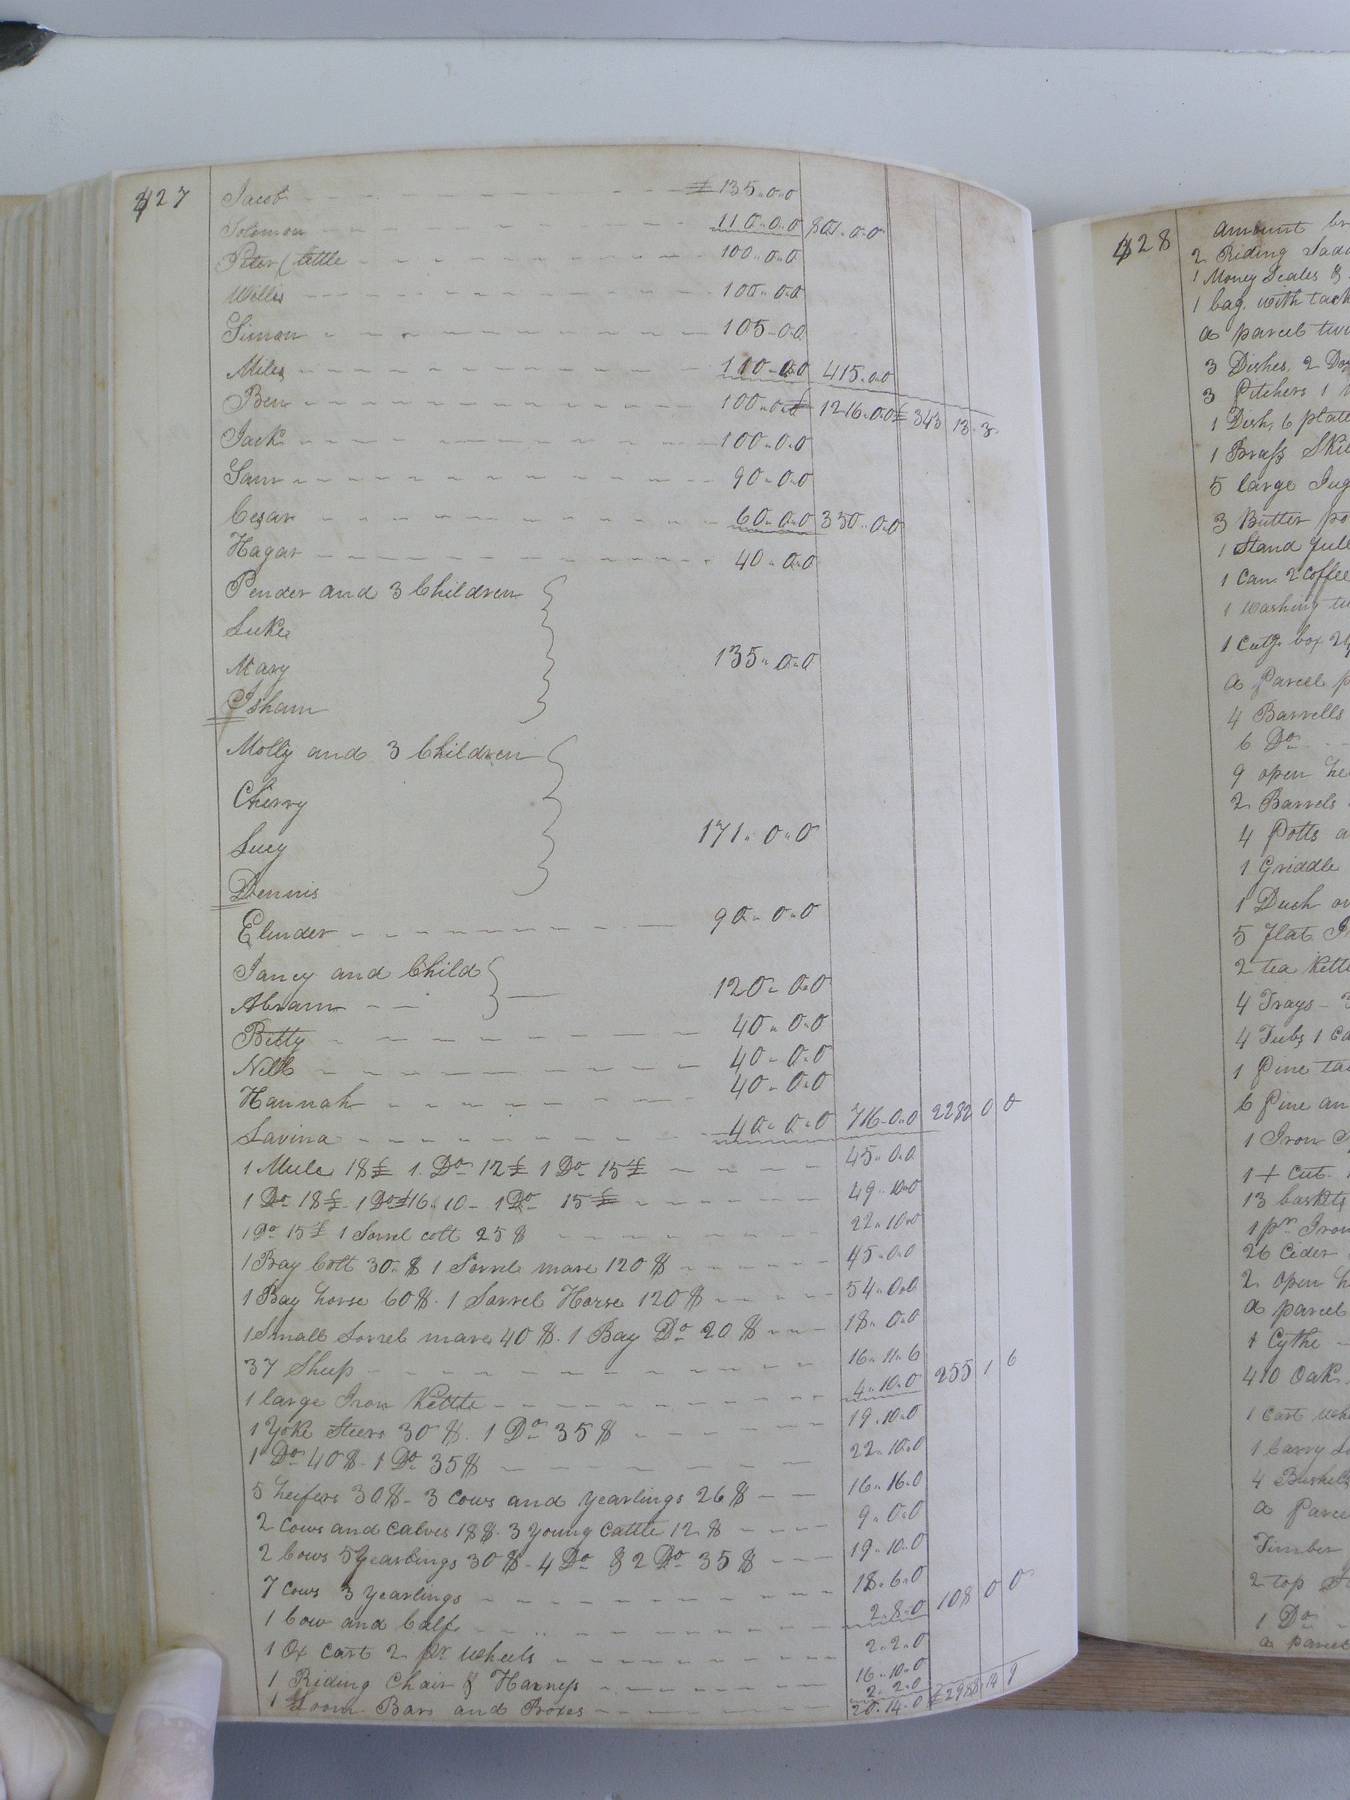 427
Jacob £135.0.0
Solomon 110.0.0 801.0.0
Peter (little 100.0.0
Willis 100.0.0
Simon 105.0.0
Miles 110.0.0 415.0.0
Ben 100.0.0 £1216.0.0 £343 13.3
Jack 100.0.0
Sam 90.0.0
Cesar 60.0.0 350.0.0
Hagar 40.0.0
Pender and 3 Children
Luke
Mary 135.0.0
Isham
Molly and 3 Children
Cherry
Lucy 171.0.0
Dennis
Elinder 90.0.0
Jancy and Child
Abram 120.0.0
Bitty 40.0.0
Nell 40.0.0
Hannah 40.0.0
Lavina 40.0.0 716.0.0 2282 0 0
1 Mule 18£ 1 Do 12£ 1 Do 15£ 45.0.0
1 Do 18£ 1 Do £16.10 1 Do 15£ 49.10.0
1 Do 15£ 1 Sorrel colt 25$ 22.10.0
1 Bay Colt 30$ 1 Sorrel mare 120$ 45.0.0
1 Bay horse 60$. 1 Sorrel Horse 120$ 54.0.0
1 Small Sorrel mare 40$. 1 Bay Do 20$ 18.0.0
37 Sheep 16.11.6
1 large Iron Kettle 4.10.0 255 1 6
1 Yoke Steers 30$. 1 Do 35$ 19.10.0
1 Do 40$ 1 Do 35$ 22.10.0
5 heifers 30$ 3 Cows and yearlings 26$ 16.16.0
2 Cows and calves 18$. 3 young Cattle 12$ 9.0.0
2 Cows 5 yearlings 30$ 4 Do & 2 Do 35$ 19.10.0
7 Cows 3 yearlings 18.6.0
1 Cow and Calf 2.8.0 108 0 0
1 Ox Cart 2 pr Wheels 2.2.0
1 Riding Chair & Harness 16.10.0
1 Loom Bars and Boxes 2.2.0
20.14.0
428
amount
2 Riding
1 Money Scales &
1 bag with
a parcel
3 Dishes, 2
3 Pitchers 1
1 Dish, 6
1 Brass
5 large
3 Butter
1 Stand
1 Can 2
1 Washing
1
a Parcel
4 Barrells
6 Do
9 open
2 Barrels
4 Potts
1 Griddle
1 Duch
5 flat
2 tea
4 Trays
4 Tubs 1
1 Pine
6 Pine
1 Iron
1 + Cut
13 baskets
1 pr Iron
26 Cider
2 open
a parcel
1 Cythe
410 Oak
1 Cart
1 Carry
4 Bushels
a
Timber
2 top
1 Do
a